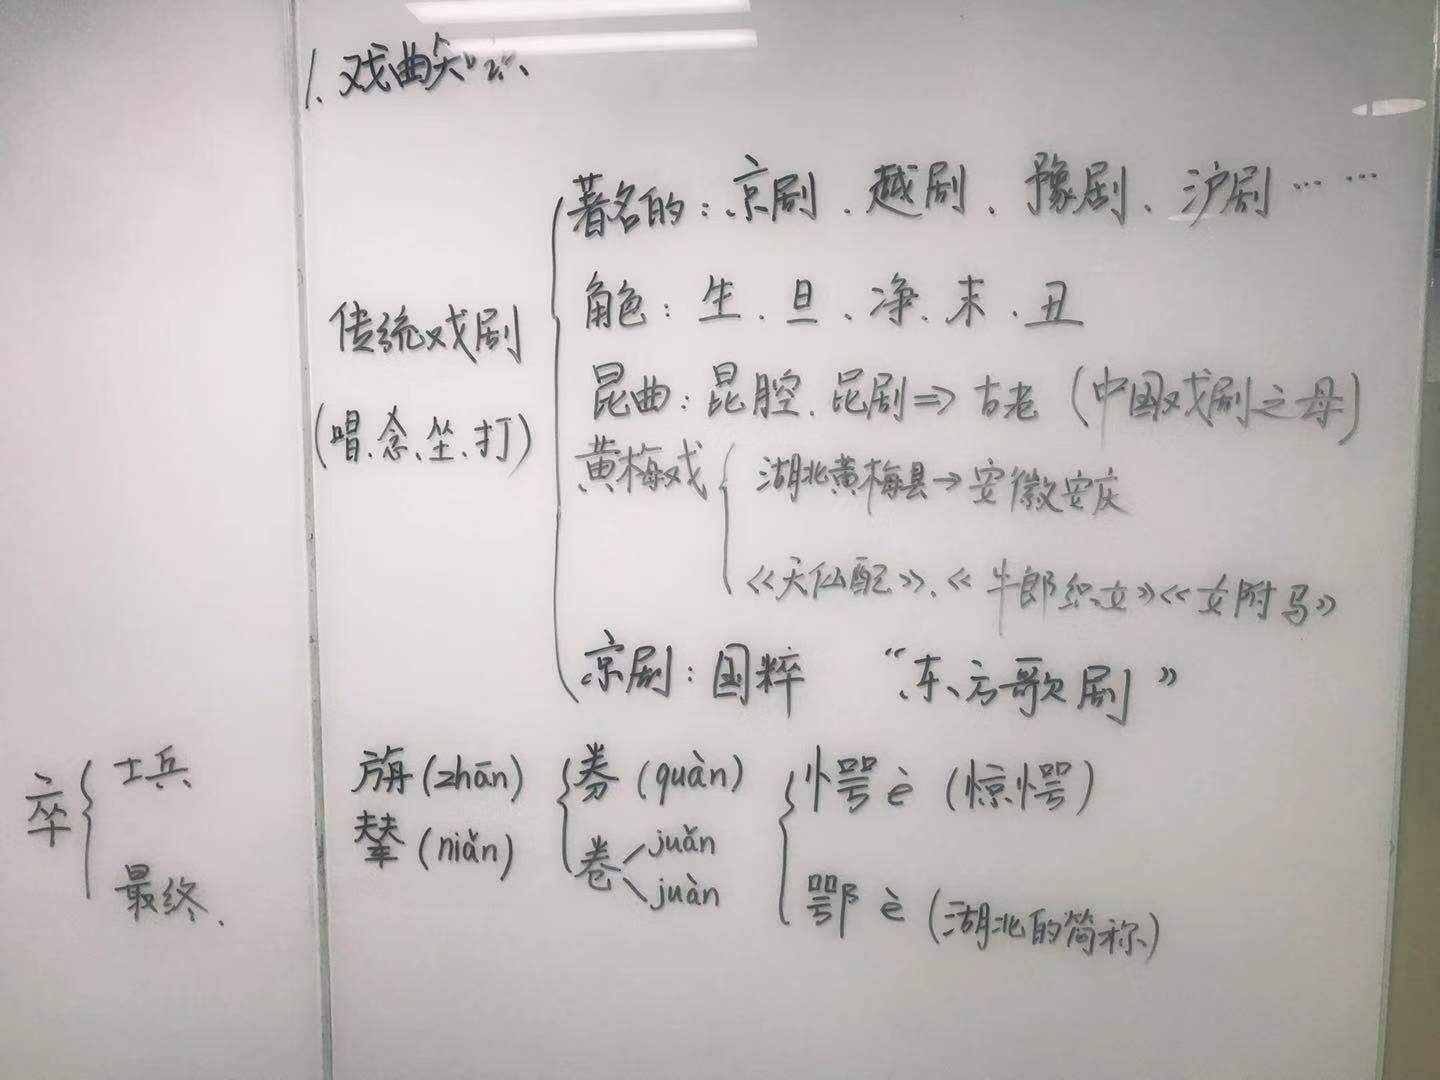 1、戏曲
传统戏剧
(唱、念、坐、打)
著名的：京剧、越剧、豫剧、沪剧……
角色：生、旦、净、末、丑
昆曲：昆腔、昆剧⇒古老（中国戏剧之母）
黄梅戏
湖北黄梅县→安徽安庆
《天仙配》、《牛郎织女》《女附马》
京剧：国粹 “东方歌剧”
卒
士兵
最终、
旃(zhān)
辇(niǎn)
券(quàn)
卷 juǎn
juàn
愕 è (惊愕)
鄂 è (湖北的简称)